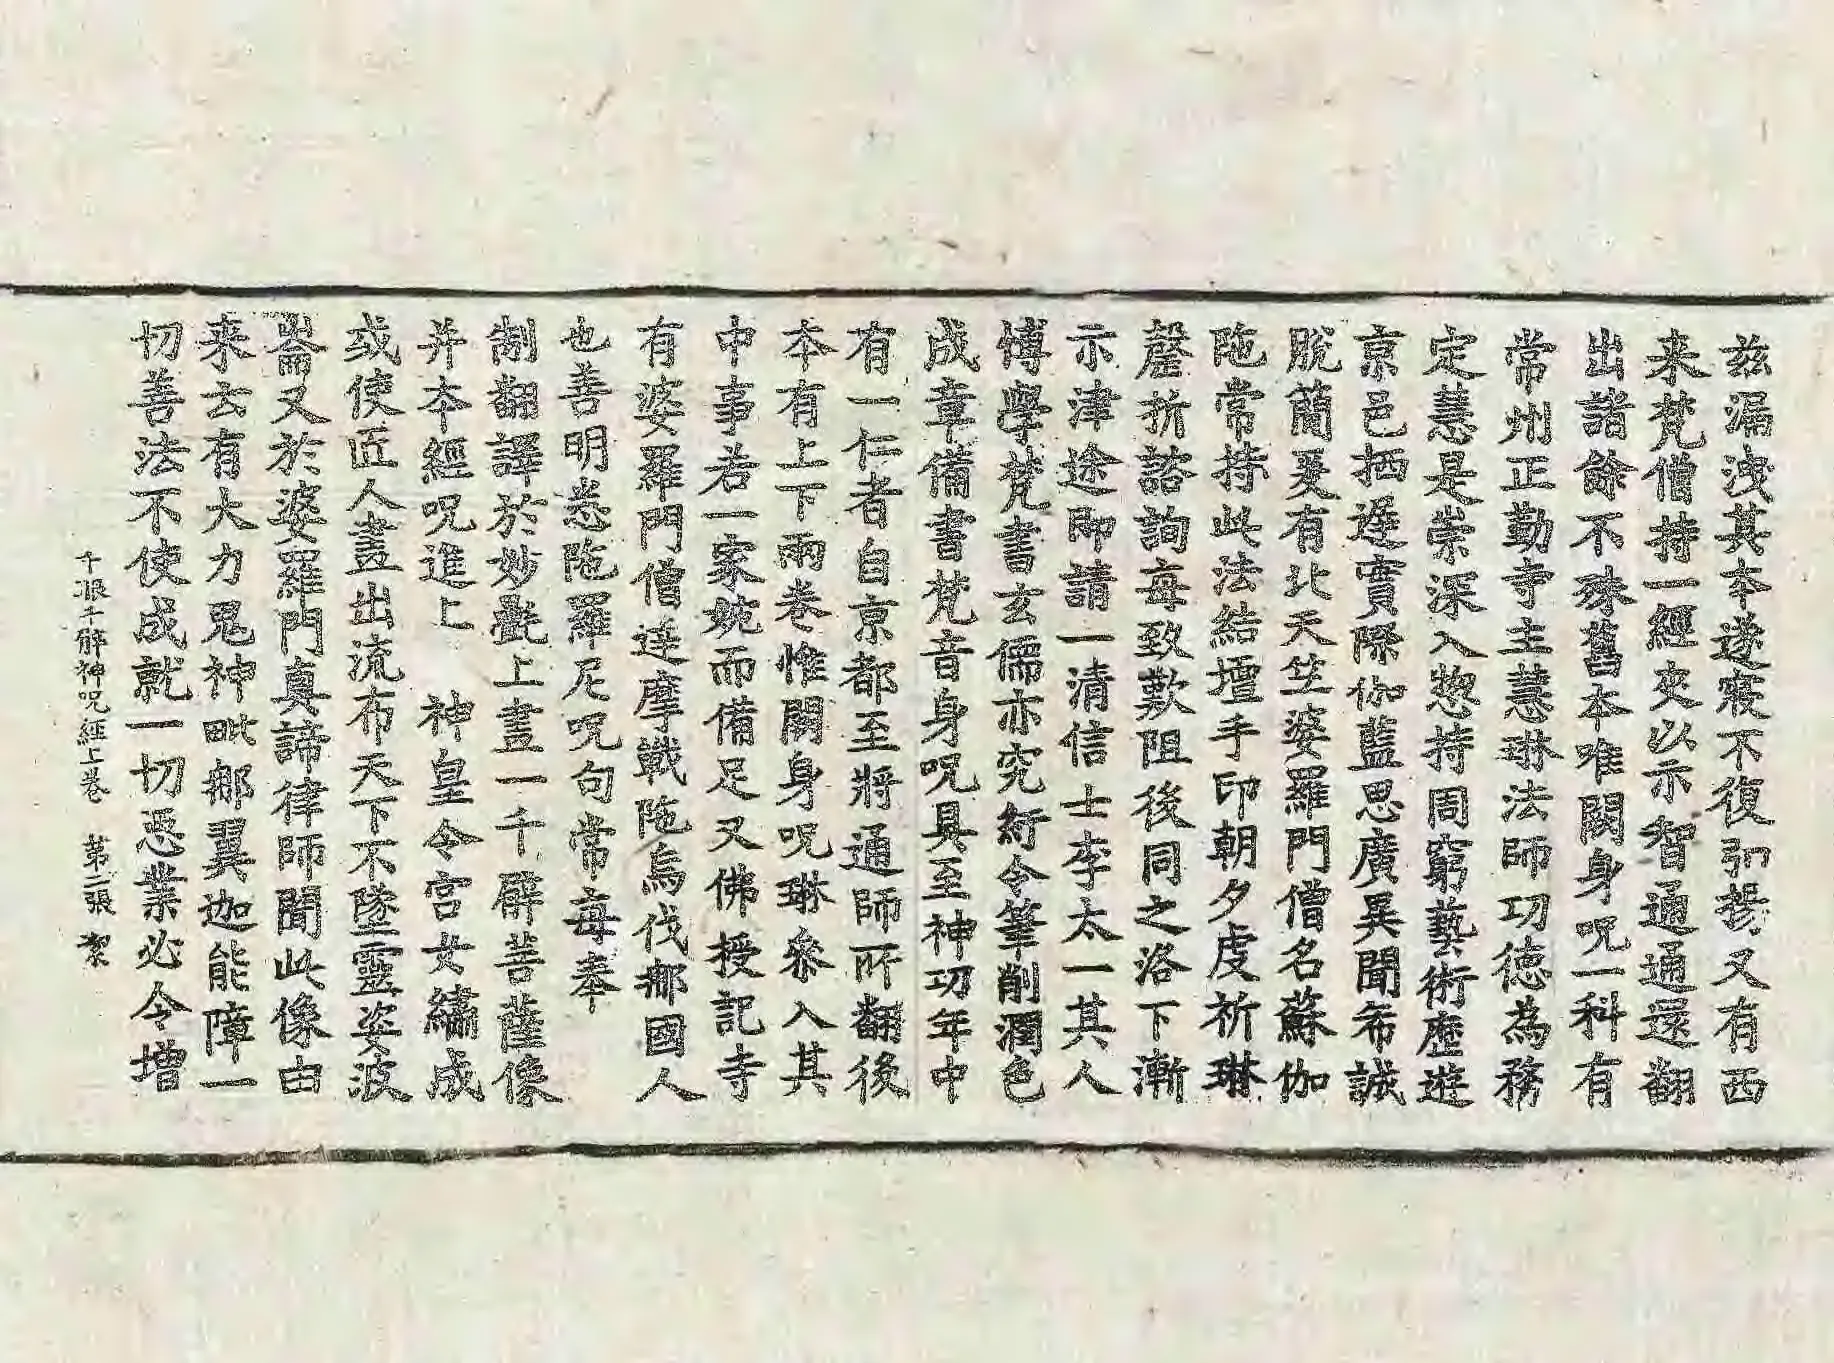 茲漏洩其本遂寢不復弘揚又有西
来梵僧持一經夾以示智通通還翻
出諸餘不殊舊本唯闕身呪一科有
常州正勤寺主慧琳法師功徳為務
定慧是崇深入惣持周窮藝術歷遊
京邑栖遅實際伽藍思廣異聞希誠
脫簡爰有北天竺婆羅門僧名蘇伽
陁常持此法結壇手印朝夕虔祈琳
罄折諮詢每致歎阻後同之洛下漸
示津途即請一清信士李太一其人
博學梵書玄儒亦究紆令筆削潤色
成章備書梵音身呪具至神功年中
有一仁者自京都至將通師所翻後
本有上下兩卷惟闕身呪琳叅入其
中事若一家婉而備足又佛授記寺
有婆羅門僧達摩戰陁烏伐郍國人
也善明悉陁羅尼呪句常每奉
制翻譯於妙㲲上畫一千臂菩薩像
并本經呪進上　神皇令宮女繡成
或使匠人畫出流布天下不墜靈姿波
崙又於婆羅門真諦律師聞此像由
来云有大力鬼神毗郍翼迦能障一
切善法不使成就一切惡業必令增
千眼千臂神呪經上卷　第二張　絜